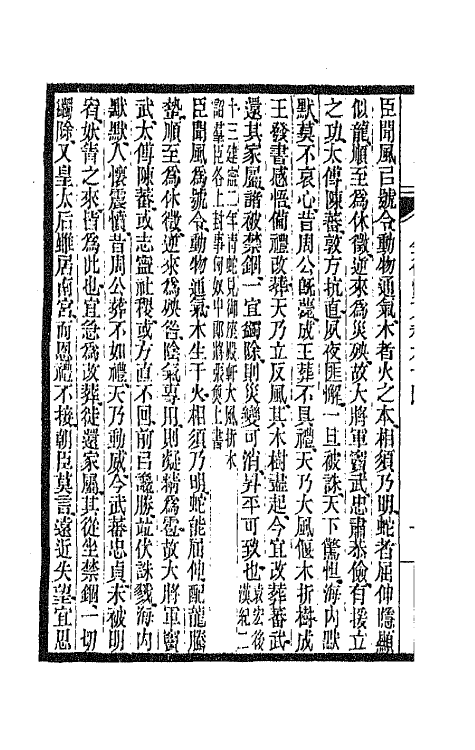 臣聞風已號令動物通氣木者火之本相須乃明蛇者屈伸隱顯
似龍順至爲休徵逆來爲災殃故大將軍竇武忠肅恭儉有援立
之功太傅陳蕃敦方抗直夙夜匪懈一旦被誅天下驚怛海內默
默莫不哀心昔周公旣薨成王葬不具禮天乃大風偃木折樹成
王發書感悟備禮改葬天乃立反風其木樹盡起今宜改葬蕃武
還其家屬諸被禁錮一宜蠲除則災變可消昇平可致也袁宏後漢紀二
十三建寧二年青蛇見御座殿軒大風折木
詔羣臣各上封事匈奴中郎將張奐上書
臣聞風爲號令動物通氣木生于火相須乃明蛇能屈伸配龍騰
蟄順至爲休徵逆來爲殃咎陰氣專用則凝精爲雹故大將軍竇
武太傅陳蕃或志寧社稷或方直不回前已讒勝竝伏誅戮海內
默默人懷震憤昔周公葬不如禮天乃動威今武蕃忠貞未被明
宥妖眚之來皆爲此也宜急爲改葬徙還家屬其從坐禁錮一切
蠲除又皇太后雖居南宮而恩禮不接朝臣莫言遠近失望宜思